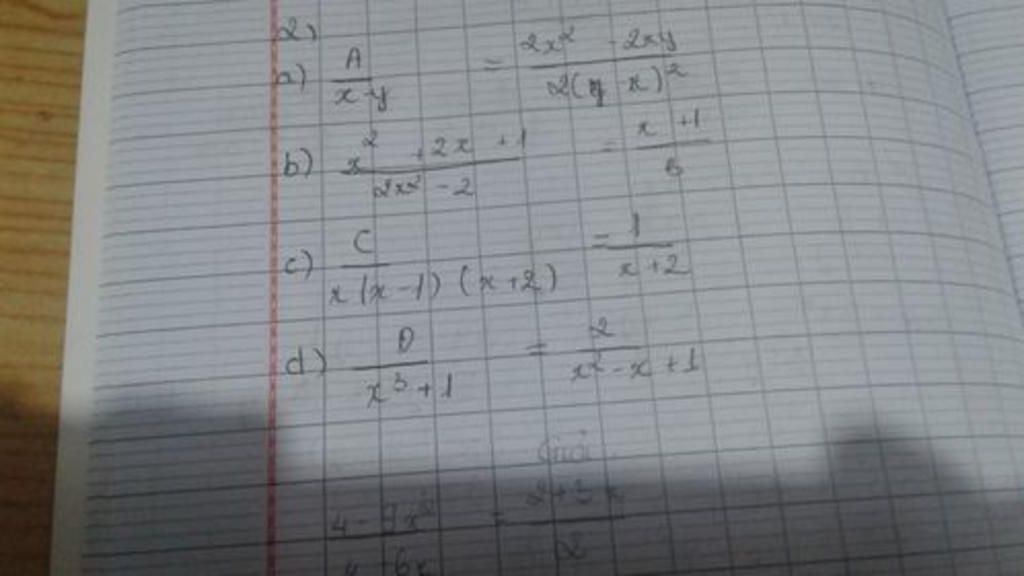 2)
a) A/(x-y) = (2x² - 2xy)/(2(y x)²)
b) (x² + 2x + 1)/(2x² - 2) = (x + 1)/B
c) C/(x(x-1)(x+2)) = 1/(x+2)
d) D/(x³+1) = 2/(x²-x+1)
Giải